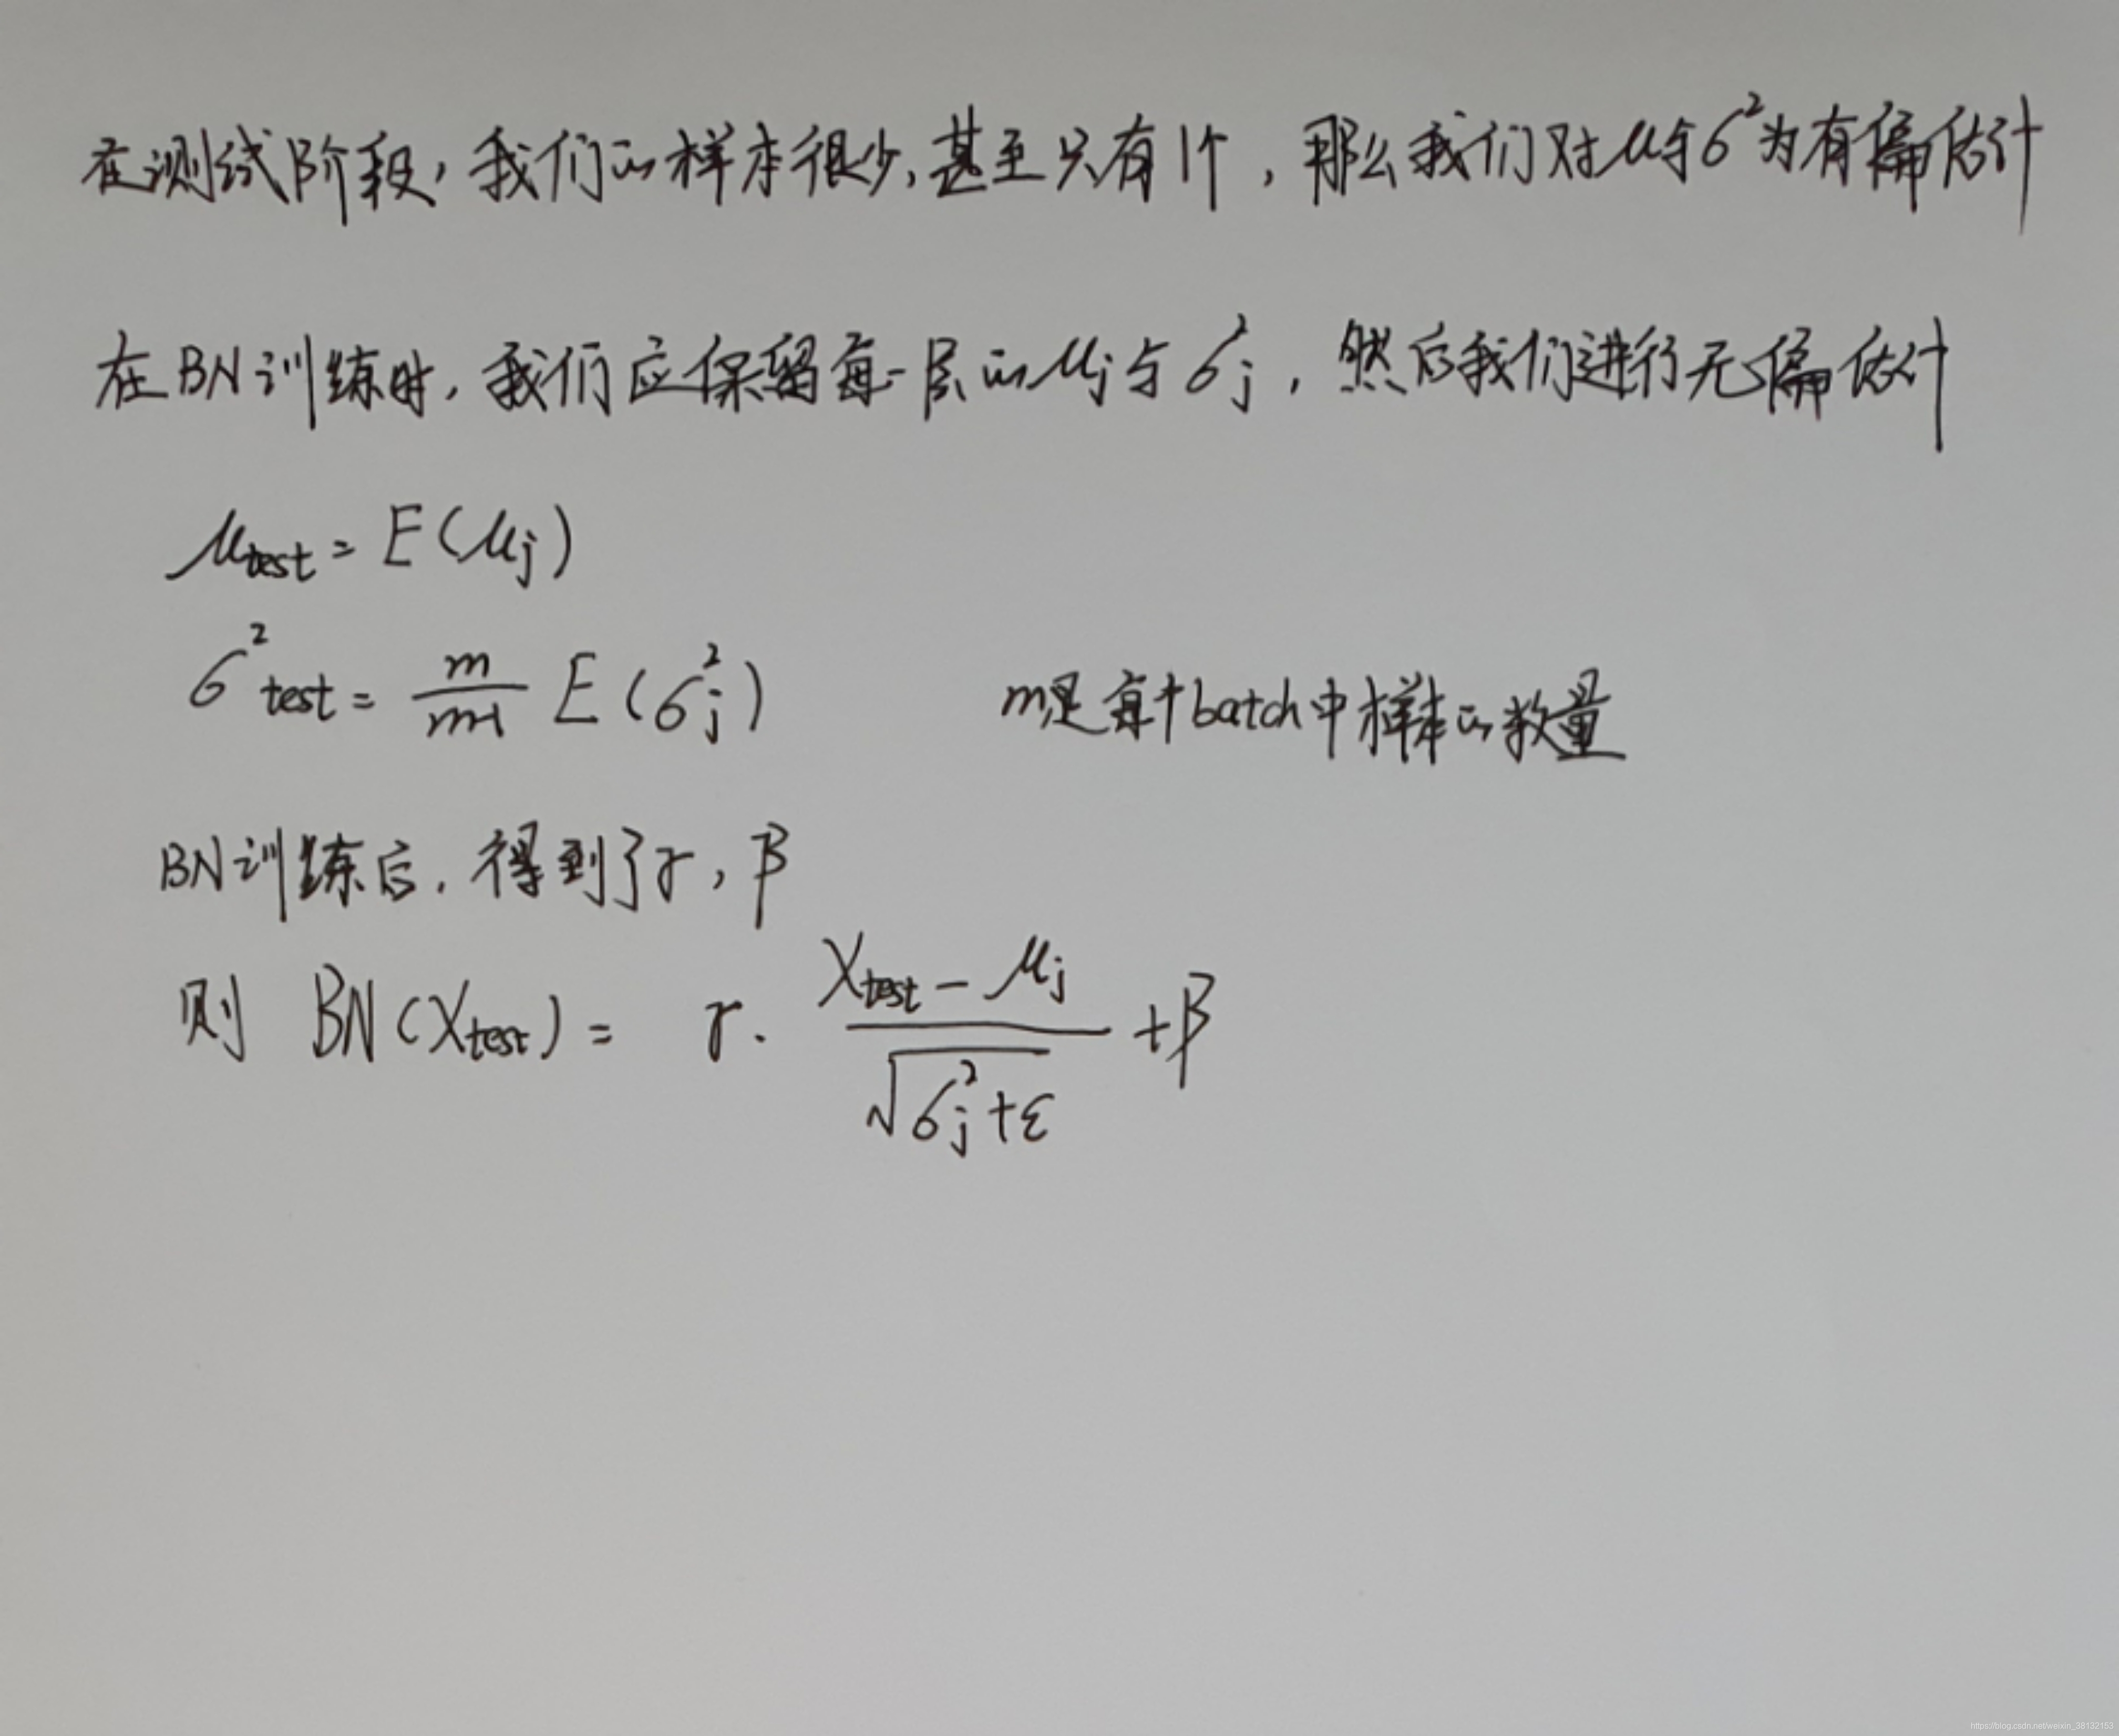 在测试阶段，我们的样本很少，甚至只有1个，那么我们对μ与σ²为有偏估计
在BN训练时，我们应保留每一层的μj与σ²j，然后我们进行无偏估计
μtest = E(μj)
σ²test = m/(m-1) E(σ²j) m是每个batch中样本的数量
BN训练后，得到了γ，β
则 BN(Xtest) = γ · (Xtest - μj)/√(σ²j+ε) + β
https://blog.csdn.net/weixin_38132153